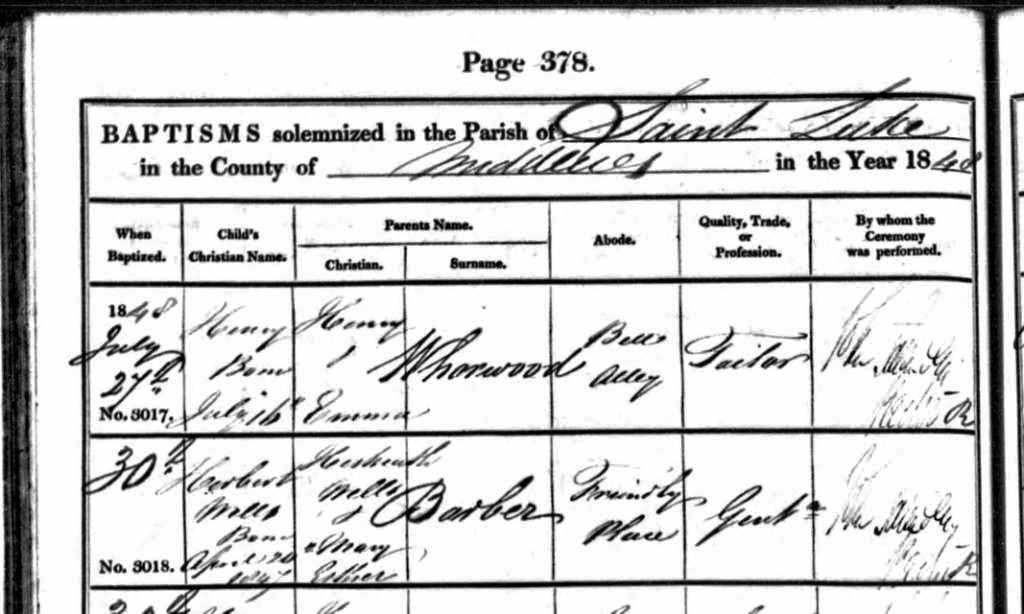 Page 378.
BAPTISMS solemnized in the Parish of Saint Luke
in the County of Middlesex in the Year 1848
When Baptized.
Child's Christian Name.
Parents Name.
Christian.
Surname.
Abode.
Quality, Trade, or Profession.
By whom the Ceremony was performed.
1848
July
27th
No. 3017.
Henry
Born
July 16th
Henry
&
Emma
Whorwood
Bell
Alley
Tailor
30th
No. 3018.
Herbert
Wells
Born
April 20
1847
Wells
&
Mary
Esther
Barber
Friendly
Place
Gentn